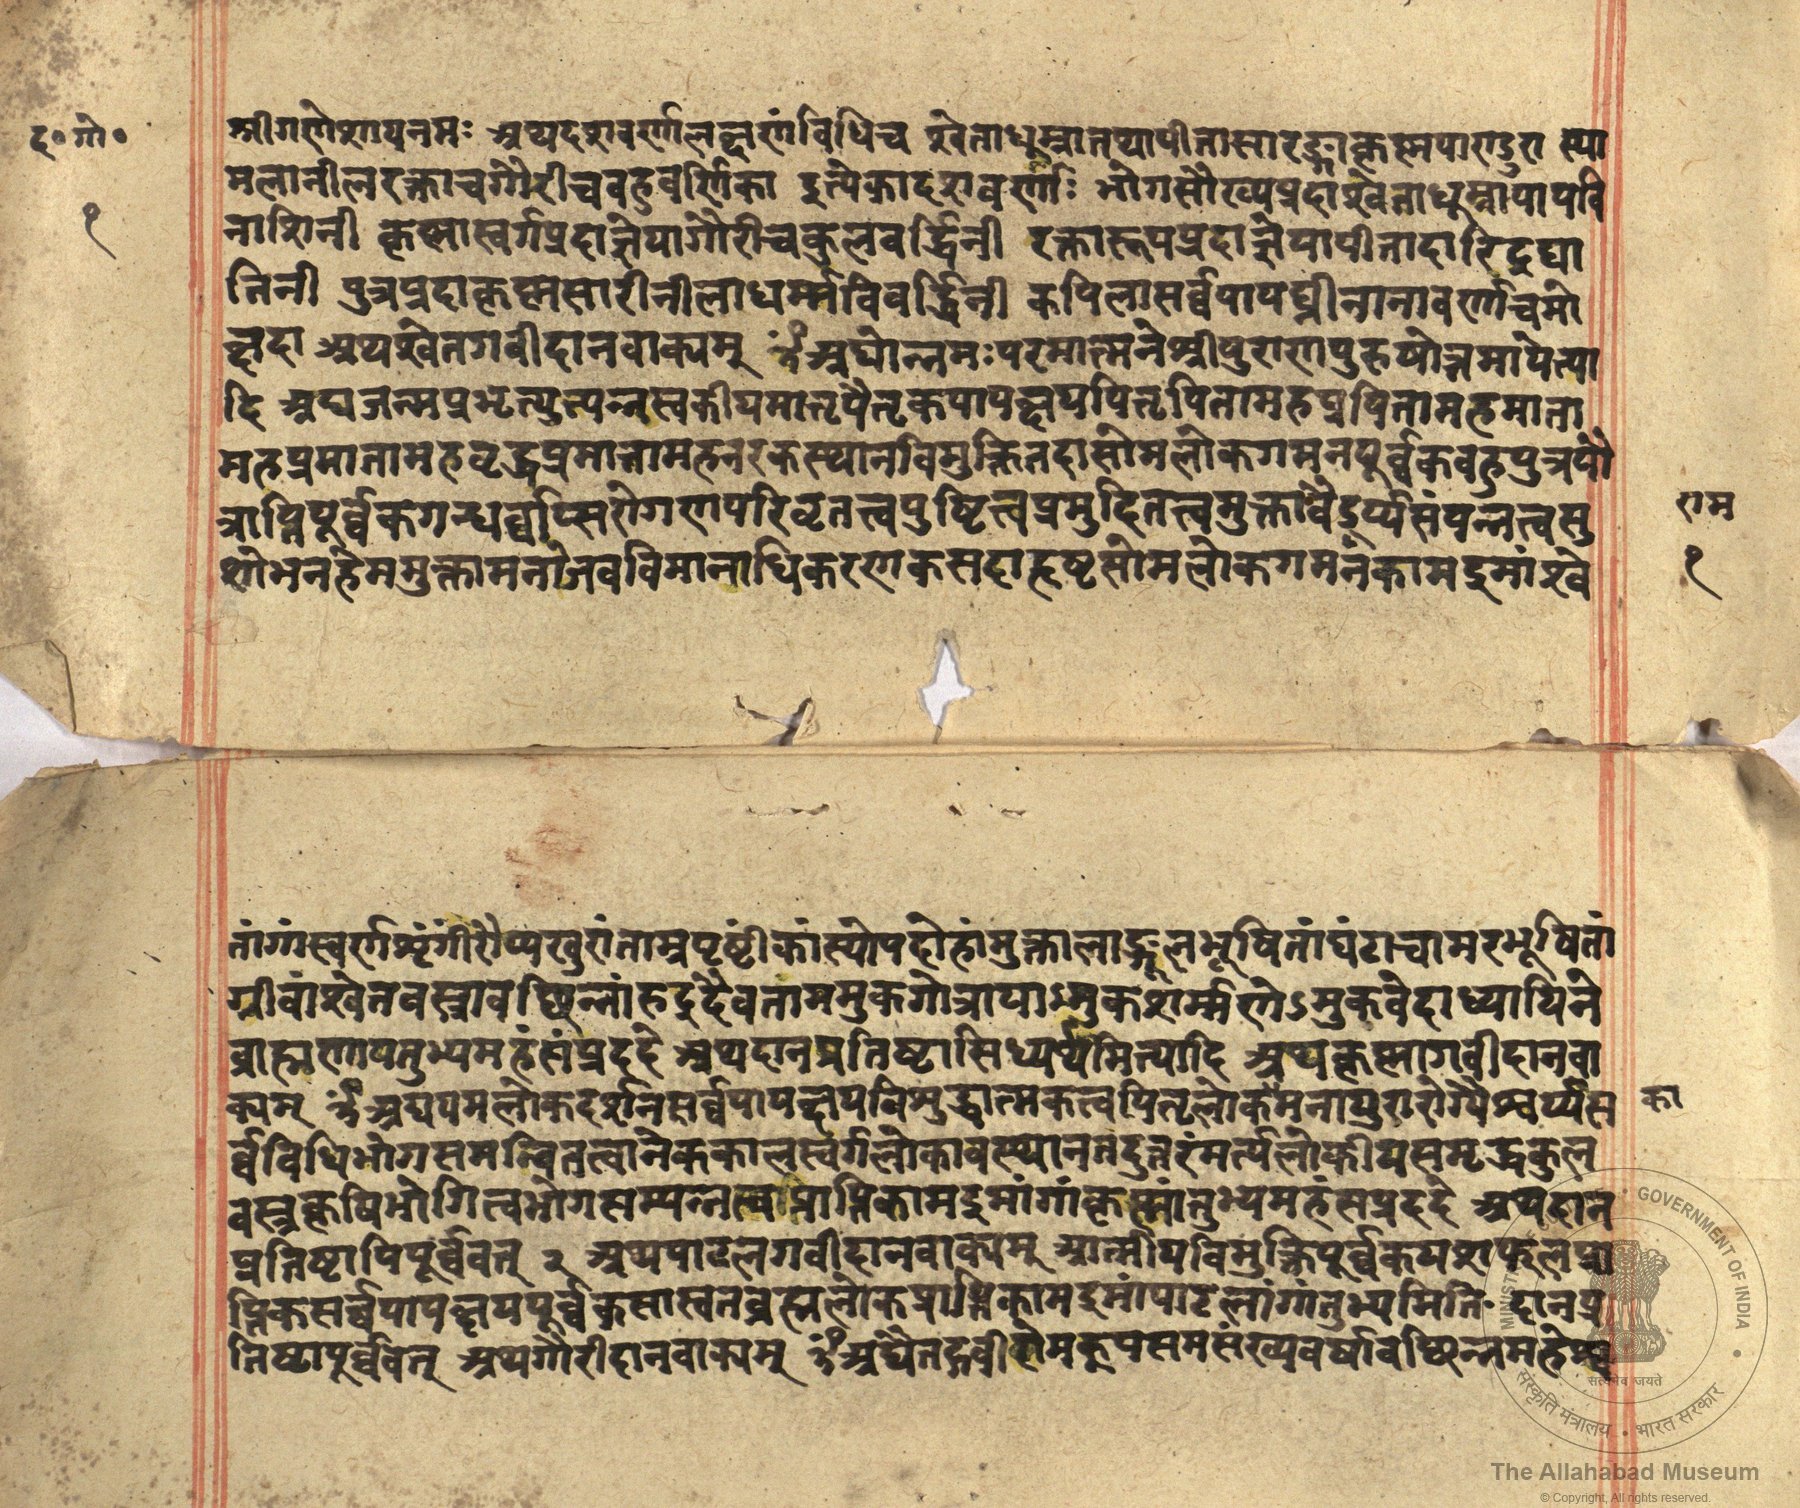 द॰गो॰
१
श्रीगणेशायनमः अथदशवर्णालक्षणंविधिच श्वेताधूम्रातथापीतासारङ्गाकृष्णपाण्डुरा स्या
मलानीलरक्ताचगौरीचबहुवर्णिका इत्येकादशवर्णाः भोगसौख्यप्रदाश्वेताधूम्रापापवि
नाशिनी कृष्णास्वर्गप्रदाज्ञेयागौरीचकुलवर्द्धिनी रक्तारूपप्रदाज्ञेयापीतादारिद्रघा
तिनी पुत्रप्रदाकृष्णसारीनीलाधर्म्मविवर्द्धिनी कपिलासर्व्वपापघ्नीनानावर्णाचमो
क्षदा अथश्वेतगवीदानवाक्यम् ॐअघोन्नमःपरमात्मनेश्रीपुराणपुरुषोत्तमायेत्या
दि अघजन्मप्रभृत्युत्पन्नस्वकीयमातृपैतृकपापक्षयपितृपितामहप्रपितामहमाता
महप्रमातामहवृद्धप्रमातामहनरकस्थानविमुक्तितदासोमलोकगमनपूर्व्वकबहुपुत्रपौ
त्राप्तिपूर्व्वकगन्धर्व्वाप्सरोगणपरिवृतत्त्वपुष्टित्वप्रमुदितत्त्वमुक्तावैडूर्य्यसंपन्नत्त्वसु
शोभनहेममुक्तामनोजवविमानाधिकरणकसदाहृष्टसोमलोकगमनकामइमांश्वे
राम
१
तांगांस्वर्णशृंगींरौप्यखुरांताम्रपृष्टींकांस्योपदोहांमुक्तालाङ्गूलभूषितांघंटाचामरभूषितां
ग्रीवांश्वेतवस्त्रावच्छिन्नांरुद्रदैवतामममुकगोत्रायाऽमुकशर्म्मणेऽमुकवेदाध्यायिने
ब्राह्मणायतुभ्यमहंसंप्रददे अथदानप्रतिष्टासिध्यर्थमित्यादि अथकृष्णागवीदानवा
क्यम् ॐअघयमलोकदर्शनसर्व्वपापक्षयविशुद्धात्मकत्त्वपितृलोकगमनायुरारोग्यैश्वर्य्यस
का
र्व्वविधिभोगसमन्वितत्वानेककालस्वर्गलोकावस्थानतदुत्तरंमर्त्यलोकीयसमृद्धकुल
वस्त्रकृषिभोगित्वभोगसम्पन्नत्वाप्राप्तिकामइमांगांकृष्णांतुभ्यमहंसप्रददे अथदान
प्रतिष्टापिपूर्व्ववत् २ अथपाटलगवीदानवाक्यम् आत्मीयविमुक्तिपूर्व्वकयशःफलप्रा
प्तिकसर्व्वपापक्षयपूर्व्वकसास्वतब्रह्मलोकप्राप्तिकामइमांपाटलांगांतुभ्यमिति· दानप्र
तिष्टापूर्व्ववत् अथगौरीदानवाक्यम् ॐअघैतद्गवीरोमकूपसमसंख्यवर्षावच्छिन्नमहेश्व
MINISTRY GOVERNMENT OF INDIA
सत्यमेव जयते
संस्कृति मंत्रालय • भारत सरकार
The Allahabad Museum
© Copyright, All rights reserved.